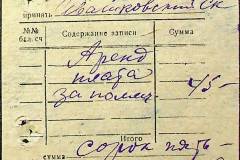 принять Свашковский СК
№№ бел. сч Содержание записи Сумма
Аренд
плата 45-
за помещ.
Итого
сумма сорок пять-